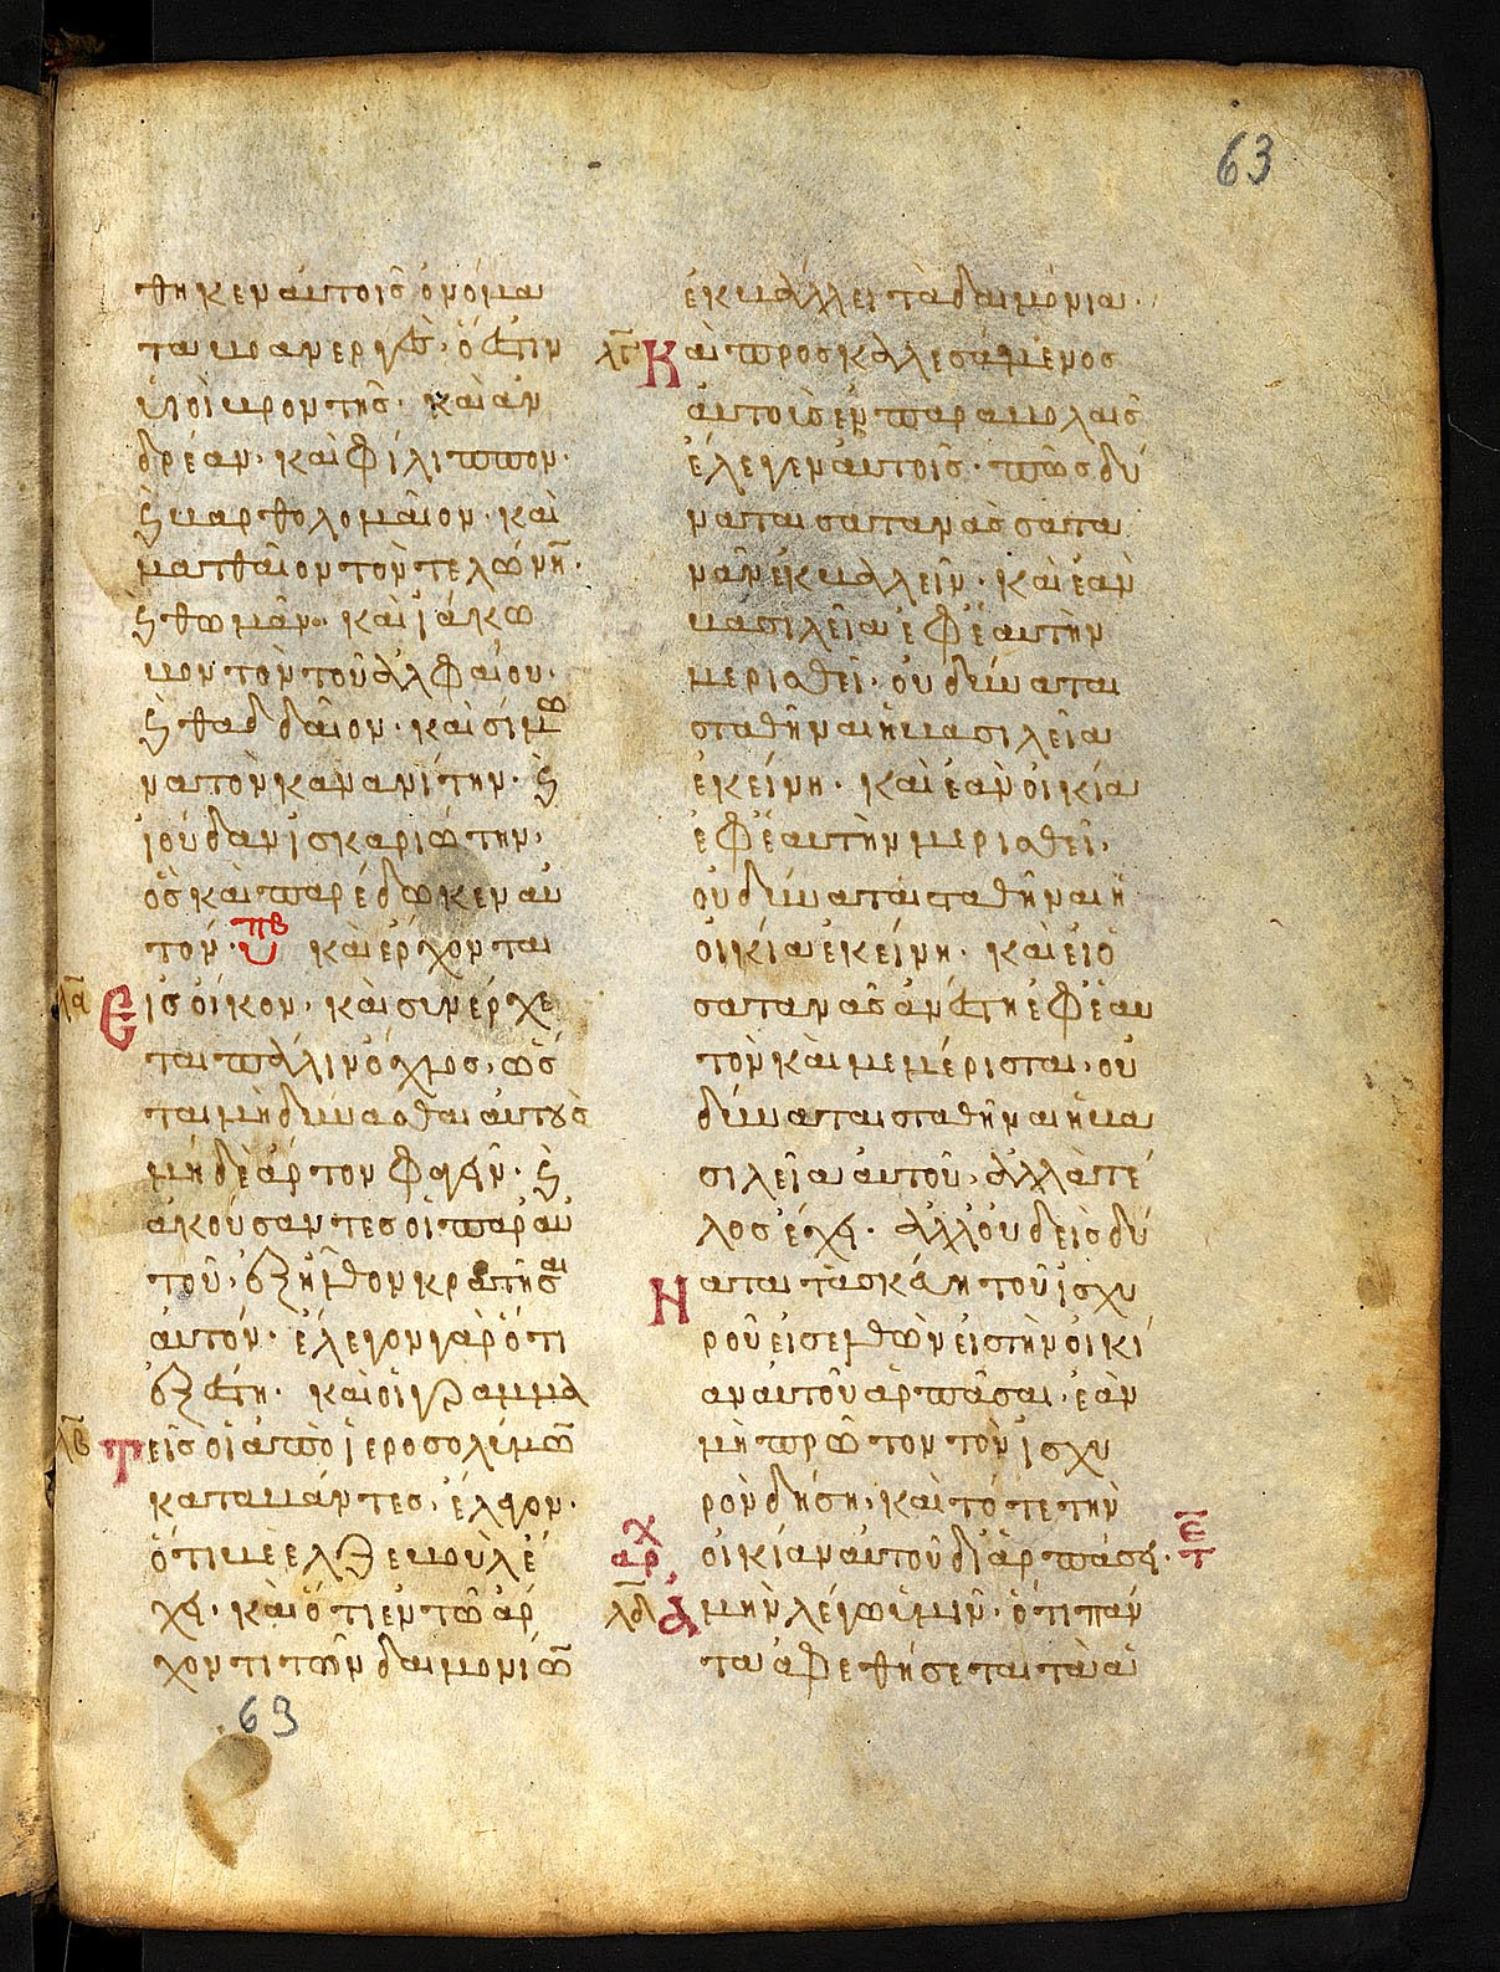 63
θηκεν αὐτοῖς ὀνόμα
τα βοανεργὲς, ὅ ἐστιν
υἱοὶ βροντῆς· καὶ ἀν
δρέαν, καὶ φίλιππον·
ϗ βαρθολομαῖον· καὶ
ματθαῖον τὸν τελώνη̅·
ϗ θωμᾶν· καὶ ἰάκω
βον τὸν τοῦ ἀλφαίου·
ϗ θαδδαῖον· καὶ σίμω
να τὸν κανανίτην· ϗ
ἰούδαν ἰσκαριώτην,
ὃς καὶ παρέδωκεν αὐ
τόν· καὶ ἔρχονται
λα̅ Εἰς οἶκον, καὶ συνέρχε
ται πάλιν ὄχλος, ὥς
ται μὴ δύνασθαι αὐτοὺς
μηδὲ ἄρτον φαγεῖν· ϗ
ἀκούσαντες οἱ παρ αὐ
τοῦ, ἐξῆλθον κρατῆσαι
αὐτόν· ἔλεγον γὰρ ὅτι
ἐξέστη· καὶ οἱ γραμμα
λβ̅ Τεῖς οἱ ἀπὸ ἱεροσολύμω̅
καταβάντες, ἔλεγον·
ὅτι βεελζεβοὺλ ἔ
χει· καὶ ὅτι ἐν τῶ ἄρ
χοντι τῶν δαιμονίω̅
63
ἐκβάλλει τὰ δαιμόνια·
λγ̅ Καὶ προσκαλεσάμενος
αὐτοὺς ἐν παραβολαῖς
ἔλεγεν αὐτοῖς· πῶς δύ
ναται σατανᾶς σατα
νᾶν ἐκβαλλεῖν· καὶ ἐὰν
βασιλεῖα ἐφ ἑαυτὴν
μερισθεῖ, οὐ δύναται
σταθῆναι ἡ βασιλεῖα
ἐκείνη· καὶ ἐὰν οἰκία
ἐφ ἑαυτὴν μερισθεῖ,
οὐ δύναται σταθῆναι ἡ
οἰκία ἐκείνη· καὶ εἰ ὁ
σατανᾶς ἀνέστη ἐφ ἑαυ
τὸν καὶ μεμέρισται, οὐ
δύναται σταθῆναι ἡ βα
σιλεῖα αὐτοῦ, ἀλλὰ τέ
λος ἔχει· ἀλλ οὐδεὶς δύ
Ναται τὰ σκεύη τοῦ ἰσχυ
ροῦ εἰσελθὼν εἰς τὴν οἰκί
αν αὐτοῦ ἁρπᾶσαι, ἐὰν
μὴ πρῶτον τὸν ἰσχυ
ρὸν δήση, καὶ τότε τὴν
αρχ οἰκίαν αὐτοῦ διαρπάσει· τε̅
λδ̅ Ἀμὴν λέγω ὑμῖν· ὅτι πάν
τα ἀφεθήσεται τὰ ἁ